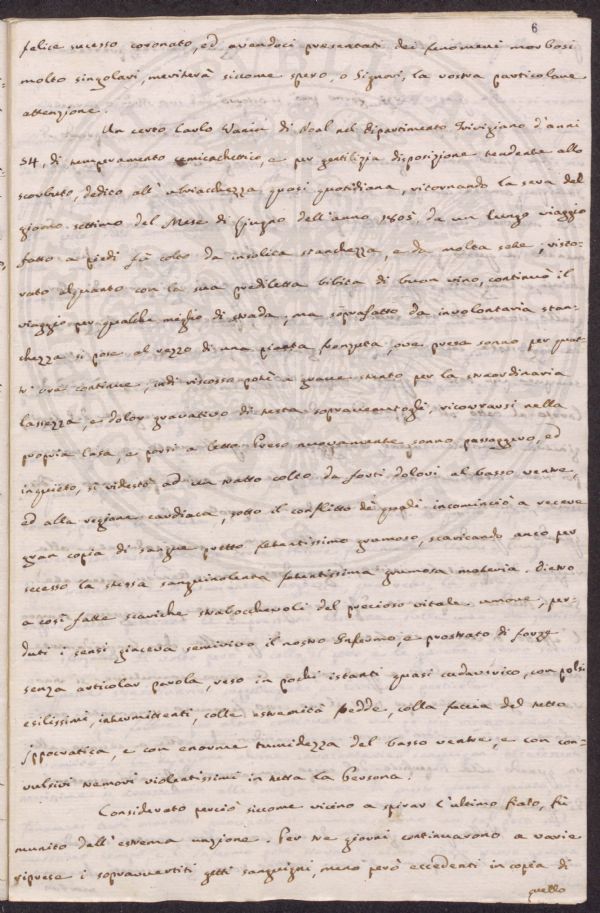 6
felice sucesso coronato, ed avendoci presentati dei fenomeni morbosi
molto singolari, meriterà siccome spero, o Signori, la vostra particolare
attenzione.
Un certo Carlo di Noal nel Dipartimento Trivigiano d'anni
54, di temperamento semicachettico, e per gentilizia disposizione tendente allo
scorbuto, dedito all'ubriacchezza quasi quotidiana, ritornando la sera del
giorno settimo del Mese di Giugno dell'anno 1805, da un lungo viaggio
fatto a piedi fù colto da insolita stanchezza, e da molta sete; risto-
rato alquanto con la sua prediletta bibita di buon vino, continuò il
viaggio per qualche miglio di strada; ma soprafatto da involontaria stan-
chezza si pose al rezzo di una pianta fronzuta, ove preso sonno per quat-
tr'ore continue, indi riscosso potè a grave stento per la straordinaria
lassezza, e dolor gravativo di testa sopravenutogli, ricovrarsi nella
propria Casa, e porsi a letto. Preso nuovamente sonno passaggiero, ed
inquieto, si ridestò ad un tratto colto da forti dolori al basso ventre,
ed alla regione cardiaca, sotto il conflitto de' quali incominciò a recere
gran copia di sangue pretto fetentissimo grumoso, scaricando anco per
secesso la stessa sanguinolenta fetentissima grumosa materia. Dietro
a così fatte scariche strabocchevoli del precioso vitale umore, per-
duti i sensi giaceva semivivo il nostro Infermo, e prostrato di forze
senza articolar parola, reso in pochi istanti quasi cadaverico, con polsi
esilissimi, intermittenti, colle estremità fredde, colla faccia del tutto
Ippocratica, e con enorme tumidezza del basso ventre, e con con-
vulsivi tremori violentissimi in tutta la Persona.
Considerato perciò siccome vicino a spirar l'ultimo fiato, fù
munito dell'estrema unzione. Per tre giorni continuarono a varie
riprese i sopravvertiti getti sanguigni, meno però eccedenti in copia di
quello